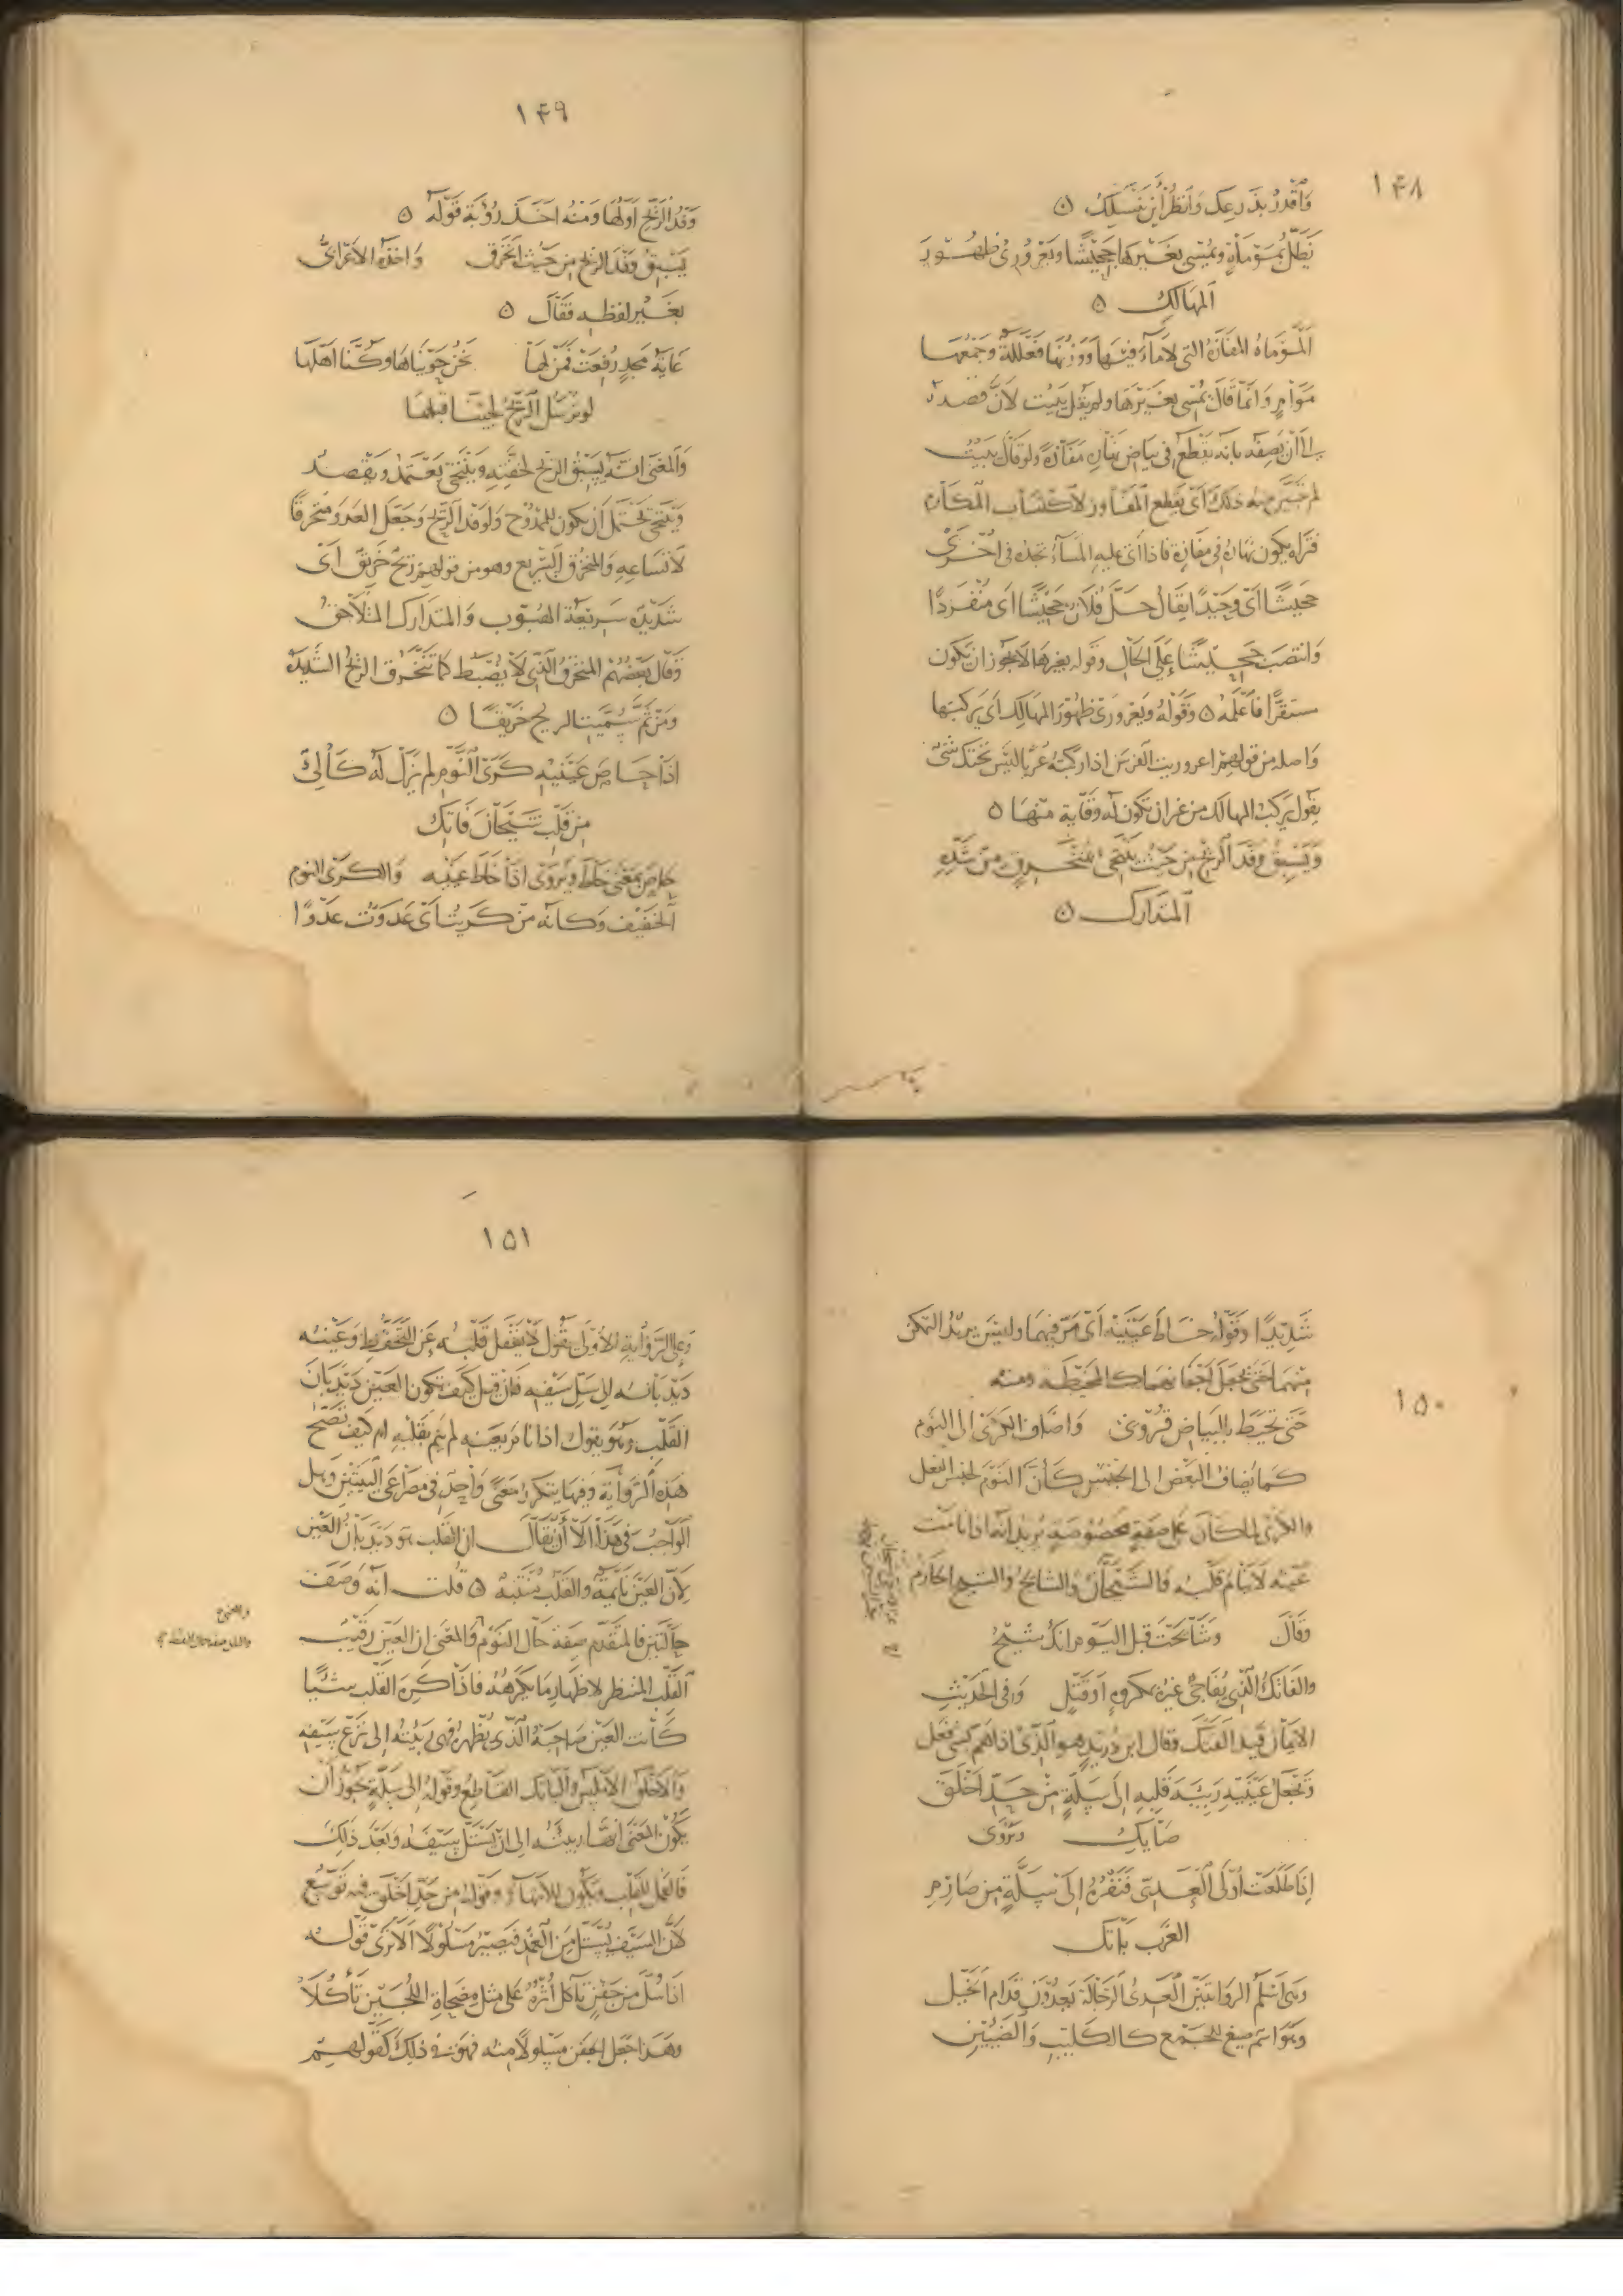 ١٤٨
وَاقْدُرْ بذَرعِكَ وَانظُر أَيْنَ تَنْسَلِكُ ۝
يَظَلُّ بمَوْمَاةٍ ويُمْسِى بغَيْرِهَا جَحِيْشًا ويَعْرَوْرِى ظهُوْرَ
المهَالكِ ۝
المَوْمَاةُ المفَازَةُ التى لاَ مَآءَ فيْهَا وَوَزْنُهَا فَعْلَلَةٌ وجَمْعُهَا
مَوَامٍ وَانمَّا قَالَ يُمْسِى بغَيْرِهَا ولم يَقُل يَبِيْت لاَنَّ قصْدَهُ
الى أَنْ يَصِفَهُ بانَّه يَقْطَعُ فى بيَاضِ نهَارِه مفَازةً ولو قالَ يَبِيْتُ
لم يَتَبَيَّن منه ذلكَ اَىْ يَقطع المفَاوز لاكتسَاب المكَارم
فتراه يكون نهَارَهُ فى مفَازةٍ فاذا اَتى عليهِ المسَآءُ تجدُه فى اُخْرَىْ
جحيشًا اَىْ وحِيْدًا يقَال حَلَّ فُلاَنٌ جحيْشًا اى منْفَرِدًا
وَانتصَبَ جَحِيْشًا عَلَى الحَالِ وقوله بغيرهَا لاَ يجُوز ان يَكون
مستقرًّا فاعْلَمْهُ ۝ وَقَوْلُهُ ويَعْرَوْرِى ظهُوْرَ المهَالِك اَى يَركبُهَا
وَاصله من قولهم اعروريت الفرَسَ اذا ركبْتَهُ عُرْيًا ليْسَ تحْتَكَ شَىْءٌ
يقُول يَركَبُ المهَالكَ من غير ان تكون له وقَايَةٌ منْهَا ۝
وَيَسْبِقُ وَفْدَ الرّيْحِ مِنْ حَيْثُ يَنْتَحِى بمُنْخَرِقٍ مِنْ شَدِّهِ
المتدَارك ۝
١٤٩
وَفْدُ الرِّيْحِ اَوَّلُهَا وَمنْهُ اَخَذَ رُؤبَة قَوْلَهُ ۝
يَسْبِقُ وَفْدَ الرّيْح مِن حَيْثُ انخَرَق وَاخذَه الاَعْرَابىُّ
بغَيْرِ لفْظِه فقَالَ ۝
غَايَةُ مَجْدٍ رُفعَتْ فمَنْ لهَا نحْنُ حَوَيْنَاهَا وكُنَّا اَهْلَهَا
لو تُرسَلُ الرّيْحُ لجئْنَا قبْلهَا
وَالمعْنَى انّه يَسْبِقُ الريْحَ لخفَّتِه وَيَنْتَحِى يَعْتَمِدُ ويَقْصِدُ
وَيَنْتَحِى يَحْتَمل اَن يكون للممْدُوْح وَلوفْدِ الرّيْحِ وجَعَلَ العدوَ منخرقًا
لاَتّسَاعِهِ وَالمنخَرِقُ السَّرِيْع وهو من قولهم ريْحٌ خَرِيْقٌ اَىْ
شَدِيْدَةٌ سَرِيْعَةُ الهُبُوْب وَالمتدَارك المتلاَحقُ
وَقَالَ بَعْضُهُمْ المنخَرِقُ الَّذِى لاَ يُضْبَط كمَا تَنخَرق الرّيْحُ الشَّدِيدَةُ
ومن ثَمَّ سُمِّيَت الريح خَرِيْقًا ۝
اِذَا حَاصَ عَيْنَيْهِ كَرَى النَّوْمِ لم يَزَلْ لَهُ كَالِئٌ
مِنْ قَلْبِ شَيْحَانَ فَاتِكِ
حَاصَ بمَعْنَى خَاطَ ويُرْوَى اذَا خَاطَ عَيْنَيْهِ وَالكَرَى النوم
الخَفِيْف وَكَانَّه مِنْ كَرَيْتُ اَىْ عَدَوْت عَدْوًا
١٥٠
شَدِيْدًا وقَوْلُه خَاطَ عَيْنَيْه اَىْ مَرَّ فيهمَا وليْسَ يريْدُ التمكّن
منْهمَا حَتى يجْعَلَ اَجْفَانَهُمَا كالمخيَّطَه ومنه
حَتَّى تخَيَّطَ بالبيَاض قُرُوْنِىْ وَاضَافَ الكَرَى الى النَوْم
كَمَا يُضَافُ البَعْضُ الى الجنْسِ كَاَنَّ النَوْمَ لجنْسِ الفعل
والكَرَى لما كَانَ عَلى صفَةٍ مخصُوْصَةٍ يُرِيْدُ اَنّه اذا نَامَت
عَيْنُه لاَ يَنَامُ قَلْبُه فَالشَّيْحَانُ وَالشَّائحُ والشّيح الحَازمُ
وَقَالَ وشَايَحْتَ قبْل اليَوْم انّكَ شيْحُ
والفَاتكُ الَّذِى يُفَاجِئُ غيْرَهُ بمكرُوهٍ اَوْ قَتْلٍ وَفى الحَدِيْثِ
الاِيمَان قَيْد الفَتْك وقَالَ ابن دُرَيْدٍ هوَ الَّذِىْ اذا هَمَّ بشَىْءٍ فعَل
وَيَجْعَلُ عَيْنَيْهِ رَبِيْئَةَ قَلْبِهِ اِلَى سَلَّةٍ مِنْ حَدِّ اَخْلَقَ
صَايِكِ ويُرْوَى
اِذَا طَلَعَتْ اُوْلَى العَدِىّ فَنَفْرُهُ اِلَى سَلَّةٍ مِن صَارِمِ
الغَرْبِ بَاتِكِ
وهى اَسْلَمُ الروَايَتَيْن العَدِىُّ الرَجَّالَةُ يَعْدُوْنَ قدَّام الخَيْل
وَهُوَ اسْم صيغ للجَمْع كالكَلِيْبِ وَالضَّئِيْنِ
١٥١
وَعَلى الرِّوَايَةِ الاُوْلَى يَقُوْلُ لاَ يَغْفل قَلْبُه عَن التَّحَفُّظِ وَعَيْنُه
دَيْدَبَانُه الى سَلِّ سَيْفِه فَان قيل كَيْفَ تكون العَيْن دَيْدَبَانَ
القَلْبِ وهُو يقوك اذا نَامَ بعَيْنِه لم يَنَم بقَلْبِه ام كَيْفَ تصحّ
هَذِه الرِّوَايَة وفيهَا يتكرر مَعْنًى وَاحِدٌ فى مصرَاعَى البَيْتَيْن وهل
الوَاجبُ فى هَذَا الاَّ أَنْ يقَالَ ان القَلْب هو دَيْدَبَانُ العَيْن
لاَنَّ العَيْنَ نَايمَةٌ والقَلْبُ مُنْتَبِهٌ ۝ قُلت انَّه وَصَفَ
حَالَتَيْن فالمتَقَدّم صِفَة حَال النَوْم وَالمعْنَى ان العَيْنَ رقيْبُ
القَلْبِ المنتظر لاظهَارِ مَا يَكرَهُهُ فاذَا كَرِهَ القَلْب شَيْئًا
كَانت العَيْنُ صَاحبَةُ الَّذِى يُظْهِرهُ فهى رَبِيْئَتُه الى نزْعِ سَيْفِه
وَالاَخْلَق الاَمْلَسُ والبَاتك القَاطِع وَقَوْلُه الى سَلَّةٍ يجُوزُ اَنْ
يَكُوْنَ المعْنَى اَنّهَا ربيئَتُه الى انْ يَسْتَلَّ سَيْفَهُ وَبَعْدَ ذلِكَ
فَالعَمَل للقَلْب ويَكُوْن للاِنتهَآءِ وقَوْلُهُ مِن حَدِّ اَخْلَقَ فيه تَوَسُّع
لاَنَّ السَّيْفَ يُسْتَلُّ مِنَ الغِمْدِ فيَصِيْرُ مَسْلُوْلاً اَلاَ تَرَى قَوْلَه
اذَا سُلَّ مِنْ جَفْنٍ تَاَكَّلَ اُثْرُهُ عَلى مثلِ مِصْحَاةِ اللُّجَيْنِ تَاَكُّلاَ
وهَذا جَعَلَ الجَفْنَ مسْلُولاً منْه فهو فى ذلك كَقَوْلهم